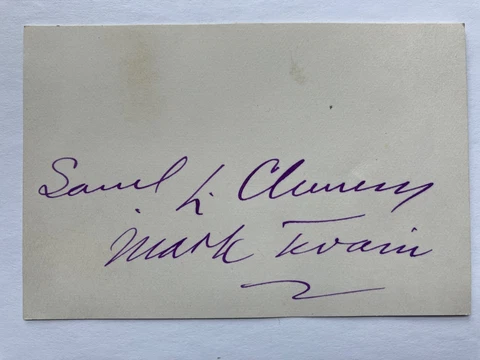 Saml L. Clemens
Mark Twain